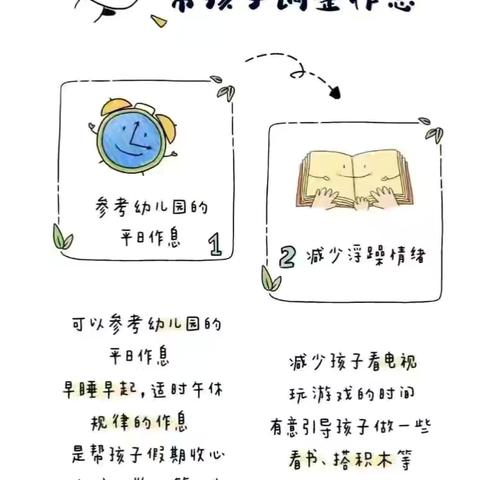 帮孩子调整作息
参考幼儿园的
平日作息
1
2 减少浮躁情绪
可以参考幼儿园的
平日作息
早睡早起，适时午休
规律的作息
是帮孩子假期收心
减少孩子看电视
玩游戏的时间
有意引导孩子做一些
看书、搭积木等